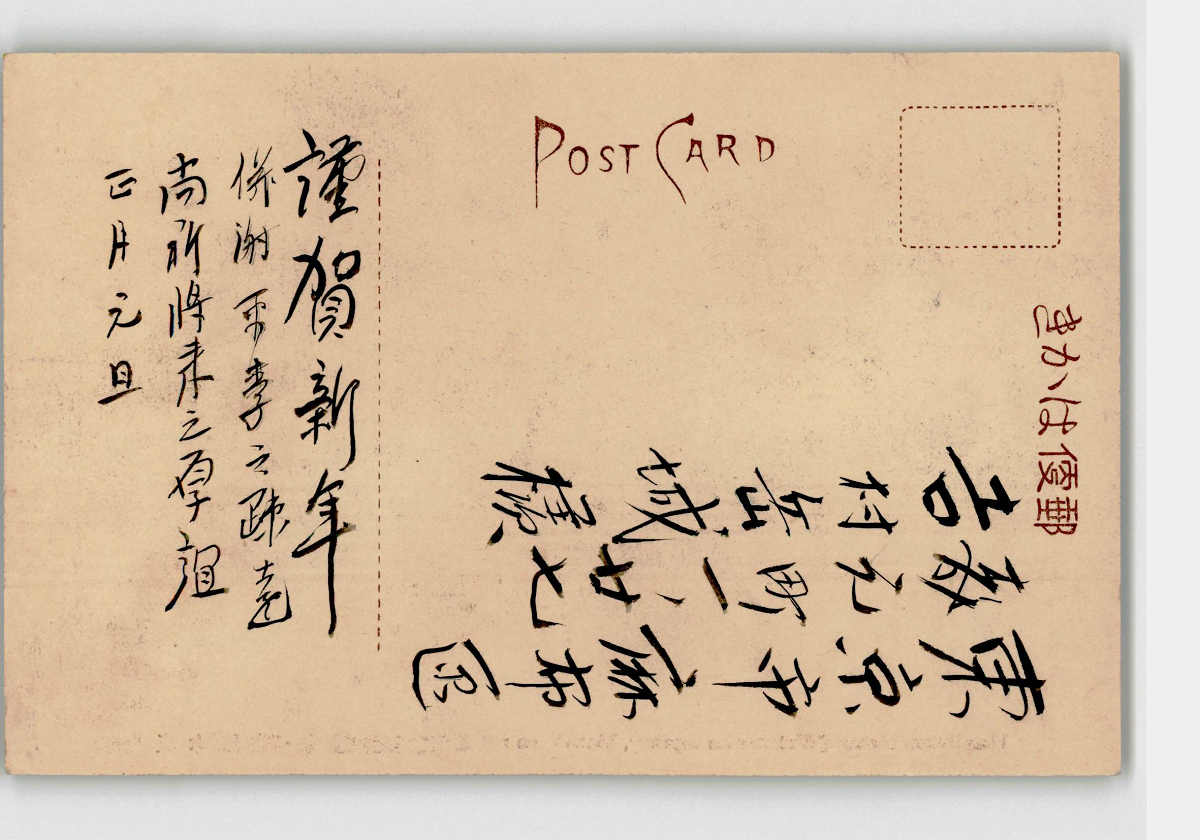 POST CARD
郵便はがき
東京市麻布区
森元町一ノ廿七
吉村岳城様
謹賀新年
併謝平素之疎遠
尚祈将来之厚誼
正月元旦